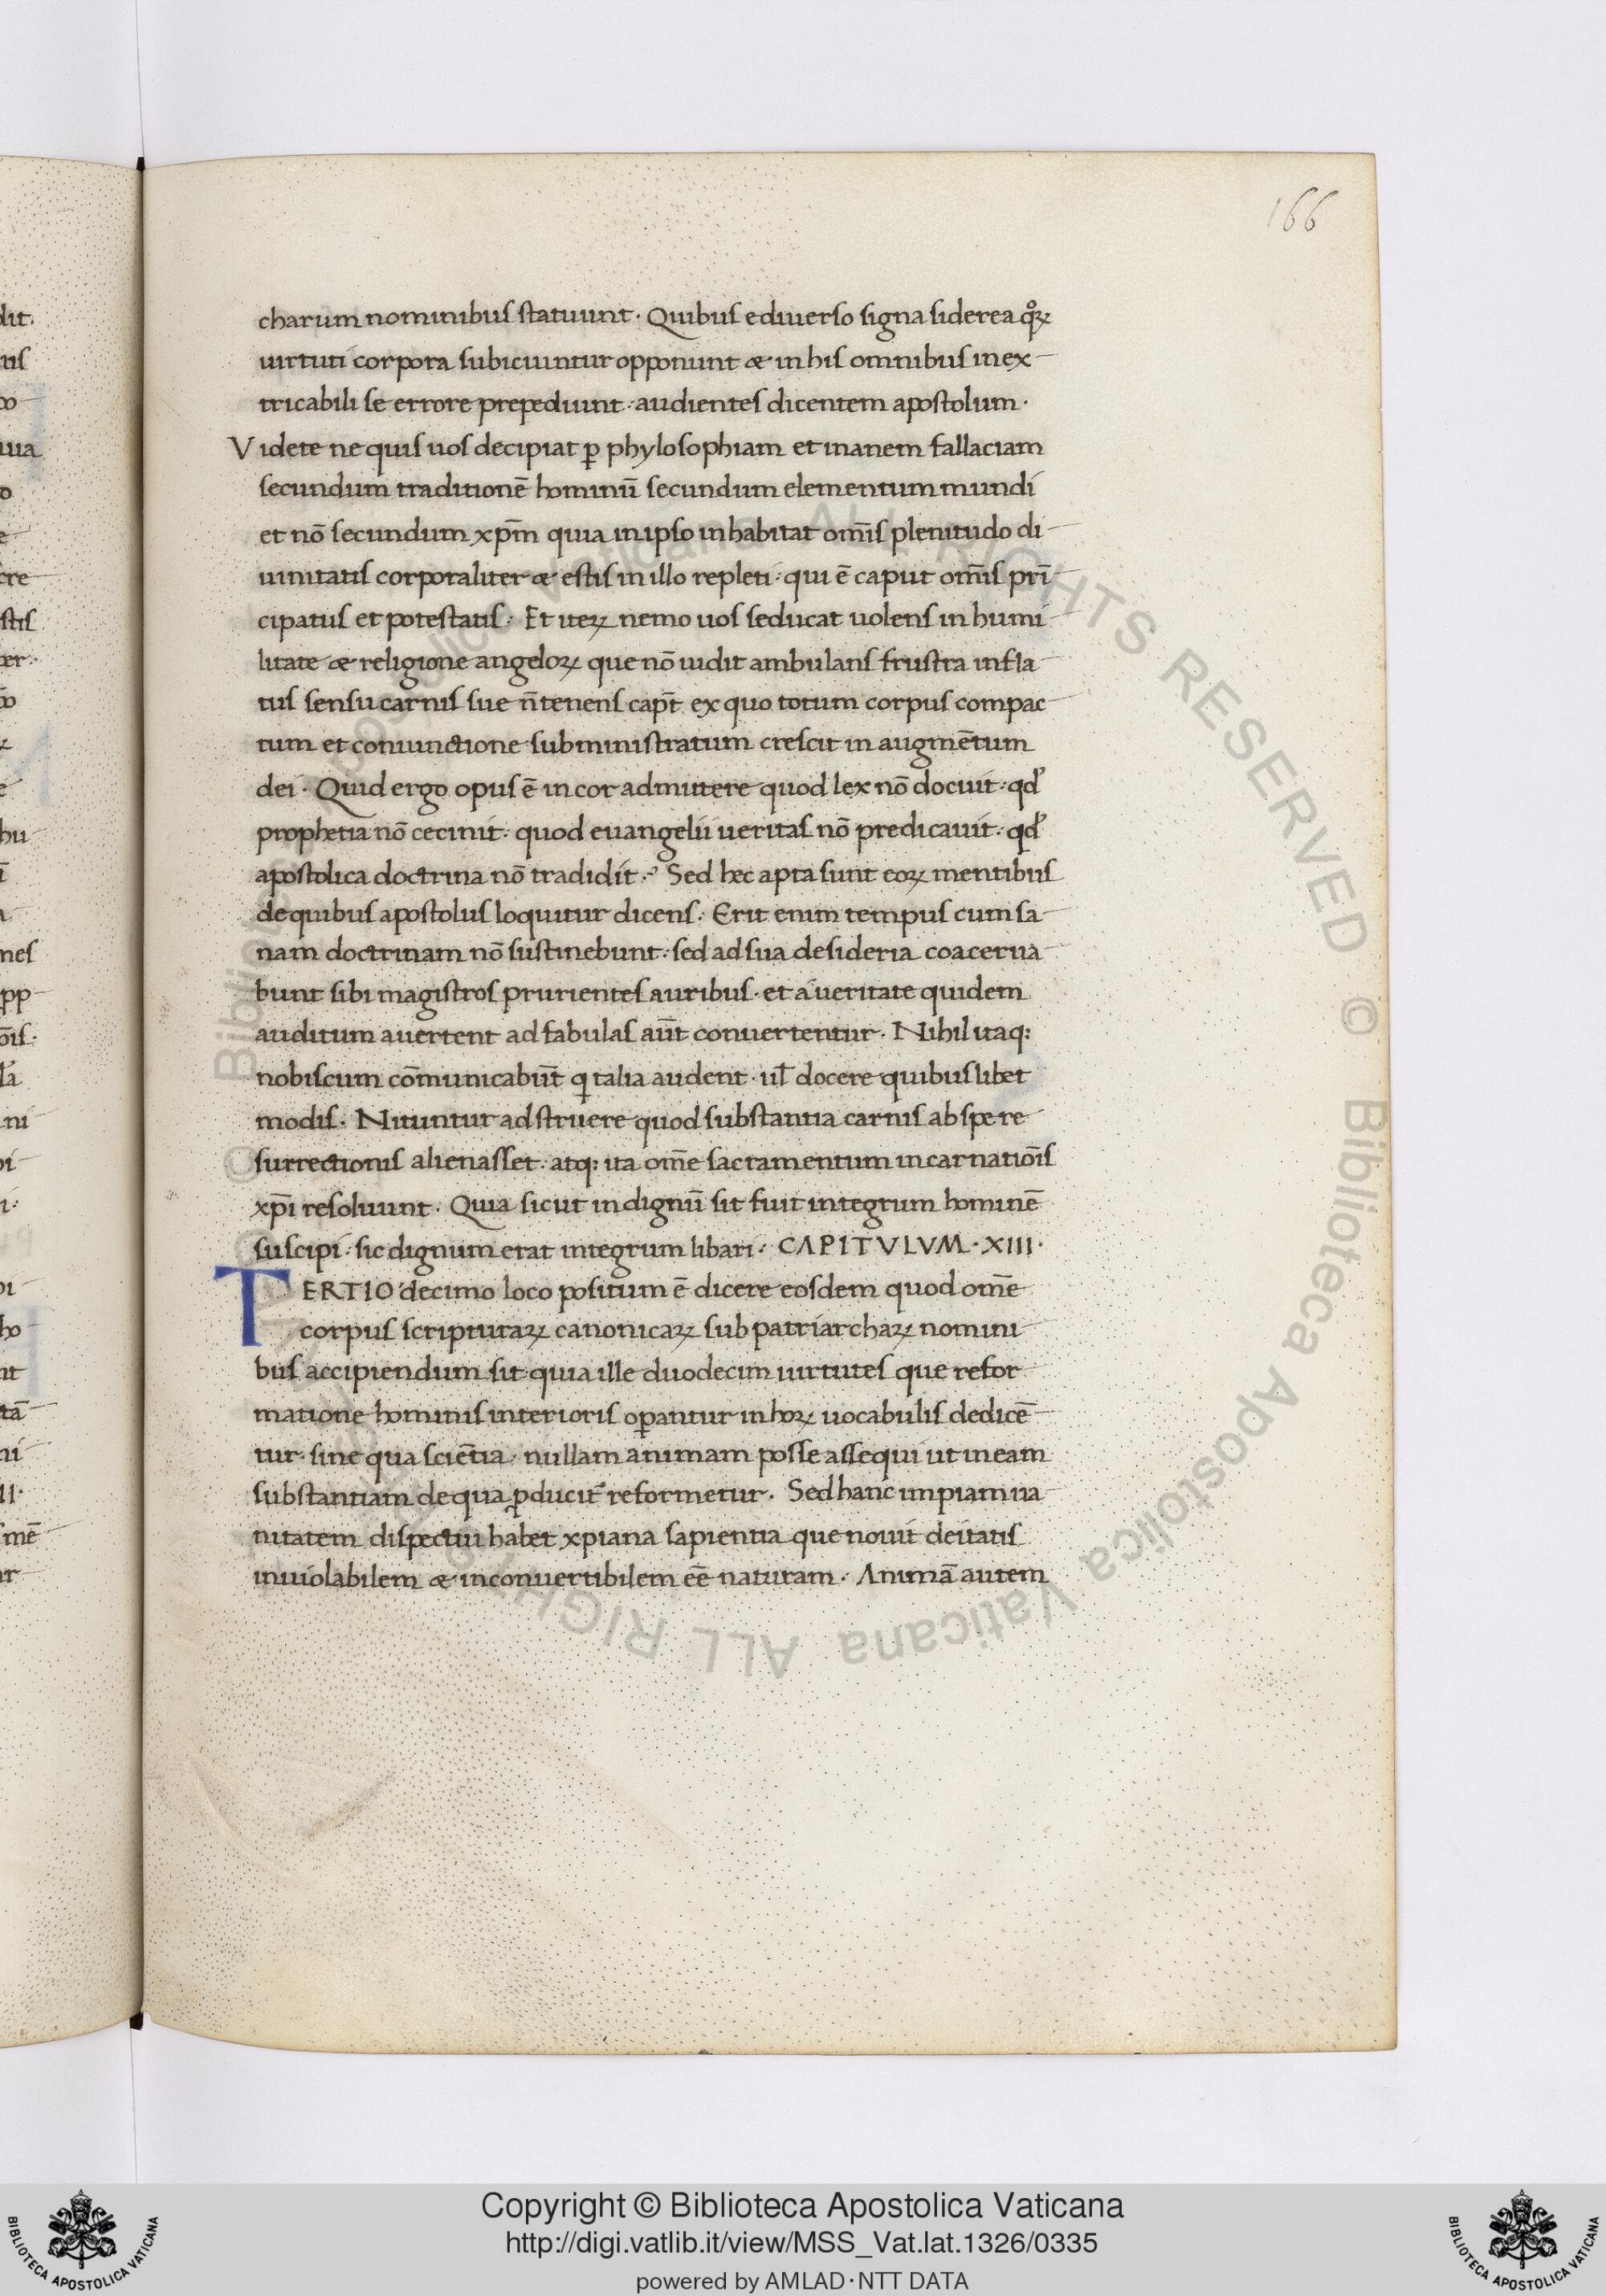 166
charum nominibus statuunt · Quibus e diuerso signa siderea qͦꝝ
uirtuti corpora subiciuntur opponunt & in his omnibus inex-
tricabili se errore prepediunt : audientes dicentem apostolum ·
Videte ne quis uos decipiat ꝑ phylosophiam et inanem fallaciam
secundum traditionē hominū secundum elementum mundi
et nō secundum xp̄m quia in ipso inhabitat om̄is plenitudo di-
uinitatis corporaliter & estis in illo repleti : qui ē caput om̄is prī-
cipatus et potestatis : Et iteꝝ nemo uos seducat uolens in humi-
litate & religione angeloꝝ que nō uidit ambulans frustra infla-
tus sensu carnis sue n̄ tenens cap̄t ex quo totum corpus compac-
tum et coniunctione subministratum crescit in augmētum
dei · Quid ergo opus ē in cor admittere quod lex nō docuit : qđ
prophetia nō cecinit : quod euangelii ueritas nō predicauit : qđ
apostolica doctrina nō tradidit ? Sed hec apta sunt eoꝝ mentibus
de quibus apostolus loquitur dicens : Erit enim tempus cum sa-
nam doctrinam nō sustinebunt : sed ad sua desideria coacerua-
bunt sibi magistros prurientes auribus · et a ueritate quidem
auditum auertent ad fabulas aūt conuertentur · Nihil itaq:
nobiscum cōmunicabūt q talia audent · ul̄ docere quibuslibet
modis · Nituntur adstruere quod substantia carnis ab spe re-
surrectionis alienasset : atq: ita om̄e sacramentum incarnatiōis
xp̄i resoluunt · Quia sicut indignū sit fuit integrum hominē
suscipi : sic dignum erat integrum libari : CAPITVLVM · XIII ·
TERTIO decimo loco positum ē dicere eosdem quod om̄e
corpus scripturaꝝ canonicaꝝ sub patriarchaꝝ nomini-
bus accipiendum sit quia ille duodecim uirtutes que refor-
matione hominis interioris oꝑantur in hoꝝ uocabulis dedicē-
tur · sine qua sciētia · nullam animam posse assequi ut in eam
substantiam de qua ꝓducit̄ reformetur · Sed hanc impiam ua-
nitatem dispectui habet xpiana sapientia que nouit deitatis
inuiolabilem & inconuertibilem eē naturam · Animā autem
Copyright © Biblioteca Apostolica Vaticana
http://digi.vatlib.it/view/MSS_Vat.lat.1326/0335
powered by AMLAD·NTT DATA